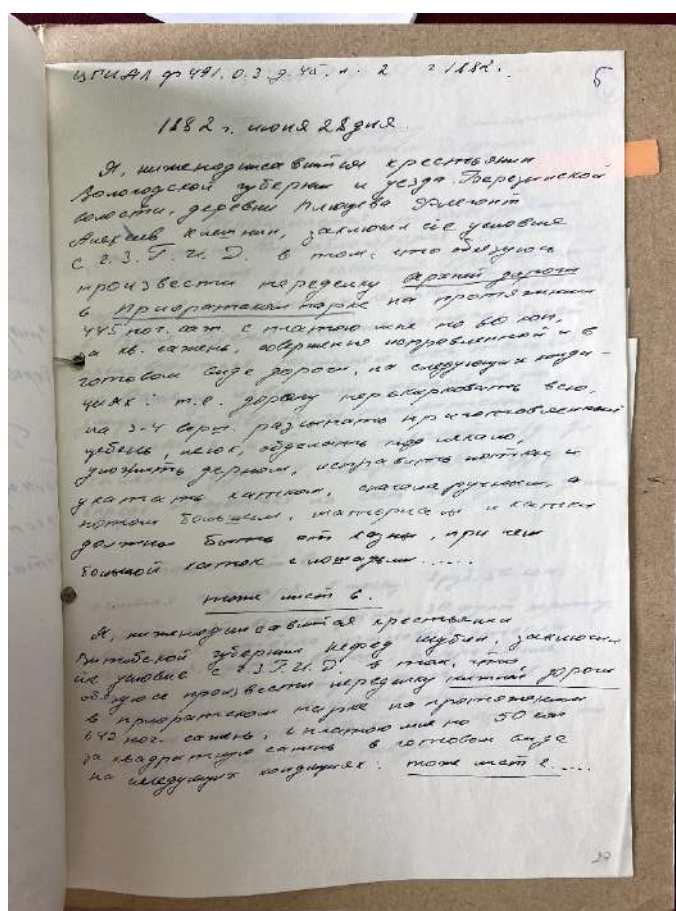 ЦГИАЛ ф 491. о. 3. д. 45. л. 2 г 1882. 6
1882 г. июня 28 дня
Я, нижеподписавшийся крестьянин
Вологодской губернии и уезда
волости, деревни Флегонт
Алексеев заключил сие условие
с Г. З. Г. И. Д. в том, что обязуюсь
произвести переделку верхней дороги
в Приоратском парке на протяжении
445 пог. саж. с платою мне по 60 коп,
за кв. сажень, совершенно исправленной и в
готовом виде дороги, на следующих конди-
циях: т.е. дорогу перекирковать всю,
на 3-4 верш. рассыпать приготовленный
щебень, песок, обделать под лекало,
уложить дерном, исправить и
укатать катком, сначала ручным, а
потом большим, материалы и катки
должны быть от казны, при чем
большой каток с лошадьми.....
тоже лист 6.
Я, нижеподписавшийся крестьянин
Витебской губернии Нефед заключил
сие условие с Г.З.Г.И.Д. в том, что
обязуюсь произвести переделку нижней дороги
в приоратском парке на протяжении
642 пог. сажень, с платою мне по 50 коп
за квадратную сажень в готовом виде
на следующих кондициях: тоже лист 2.....
27